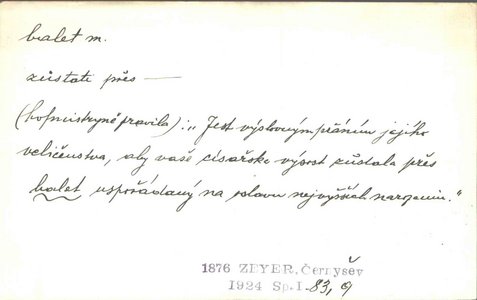 balet m.
zůstati přes —
(hofmistryně pravila): „Jest výslovným přáním jejího
veličenstva, aby vaše císařská výsost zůstala přes
balet uspořádaný na oslavu nejvyšších narozenin.“
1876 ZEYER, Černyšev
1924 Sp. I. 83, 9